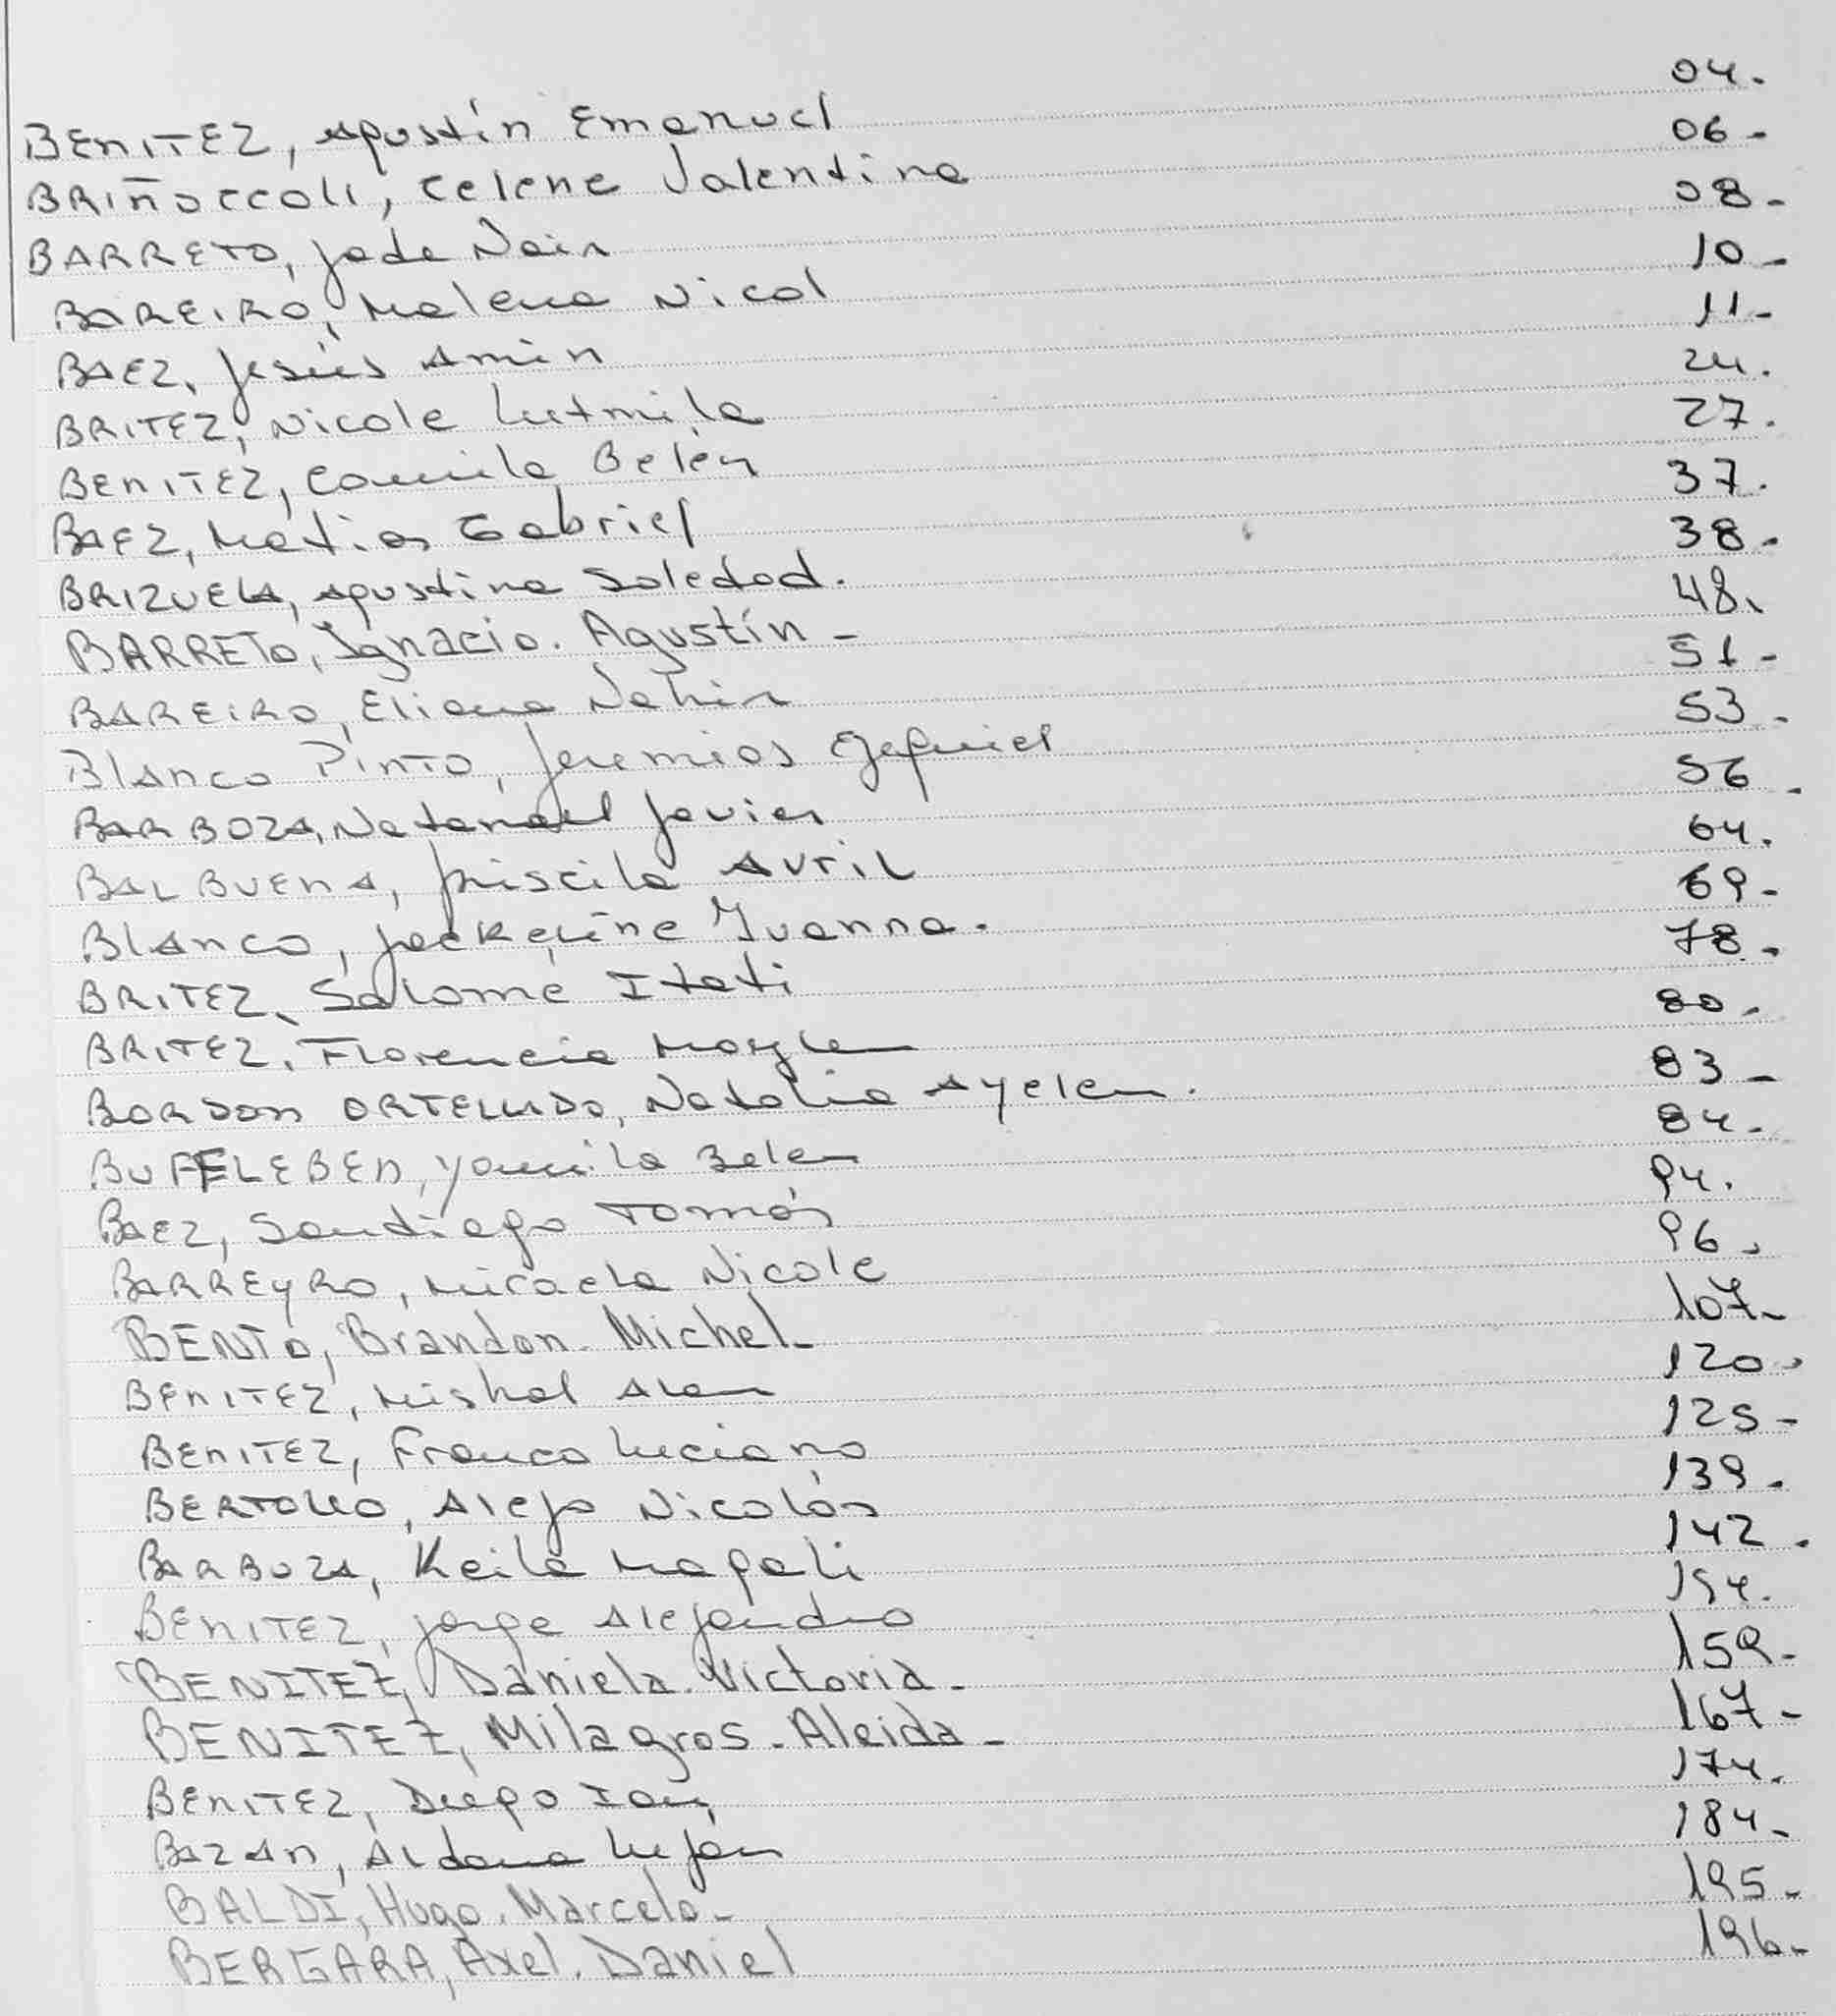 BENITEZ, Agustín Emanuel 04.
BRIÑOCCOLI, Celene Valentina 06-
BARRETO, Jade Nair 08-
BAREIRO, Malena Nicol 10-
BAEZ, Jesús Amin 11-
BRITEZ, Nicole Lutmila 24.
BENITEZ, Camila Belén 27.
BAEZ, Matias Gabriel 37.
BRIZUELA, Agustina Soledad. 38.
BARRETO, Ignacio. Agustín - 48.
BAREIRO, Eliana Nahir 51-
BLANCO PINTO, Jeremias 53.
BARBOZA, Natanael Javier 56.
BALBUENA, Priscila Avril 64.
BLANCO, Jackeline Ivanna. 69-
BRITEZ, Salomé Itati 78.
BRITEZ, Florencia Maylen 80.
BORDON ORTELLADO, Natalia Ayelen. 83-
BUFFELEBEN, Yamila Belen 84.
BAEZ, Santiago Tomás 94.
BARREYRO, Micaela Nicole 96.
BENTO, Brandon. Michel- 107-
BENITEZ, Mishal Alan 120.
BENITEZ, Franco Luciano 125-
BERTOLLO, Alejo Nicolás 139.
BARBOZA, Keila Magali 142.
BENITEZ, Jorge Alejandro 154.
BENITEZ, Daniela. Victoria- 159-
BENITEZ, Milagros- Aleida- 167-
BENITEZ, Diego Ian 174.
BAZAN, Aldana Luján 184-
BALDI, Hugo. Marcelo- 195-
BERGARA, Axel. Daniel 196-